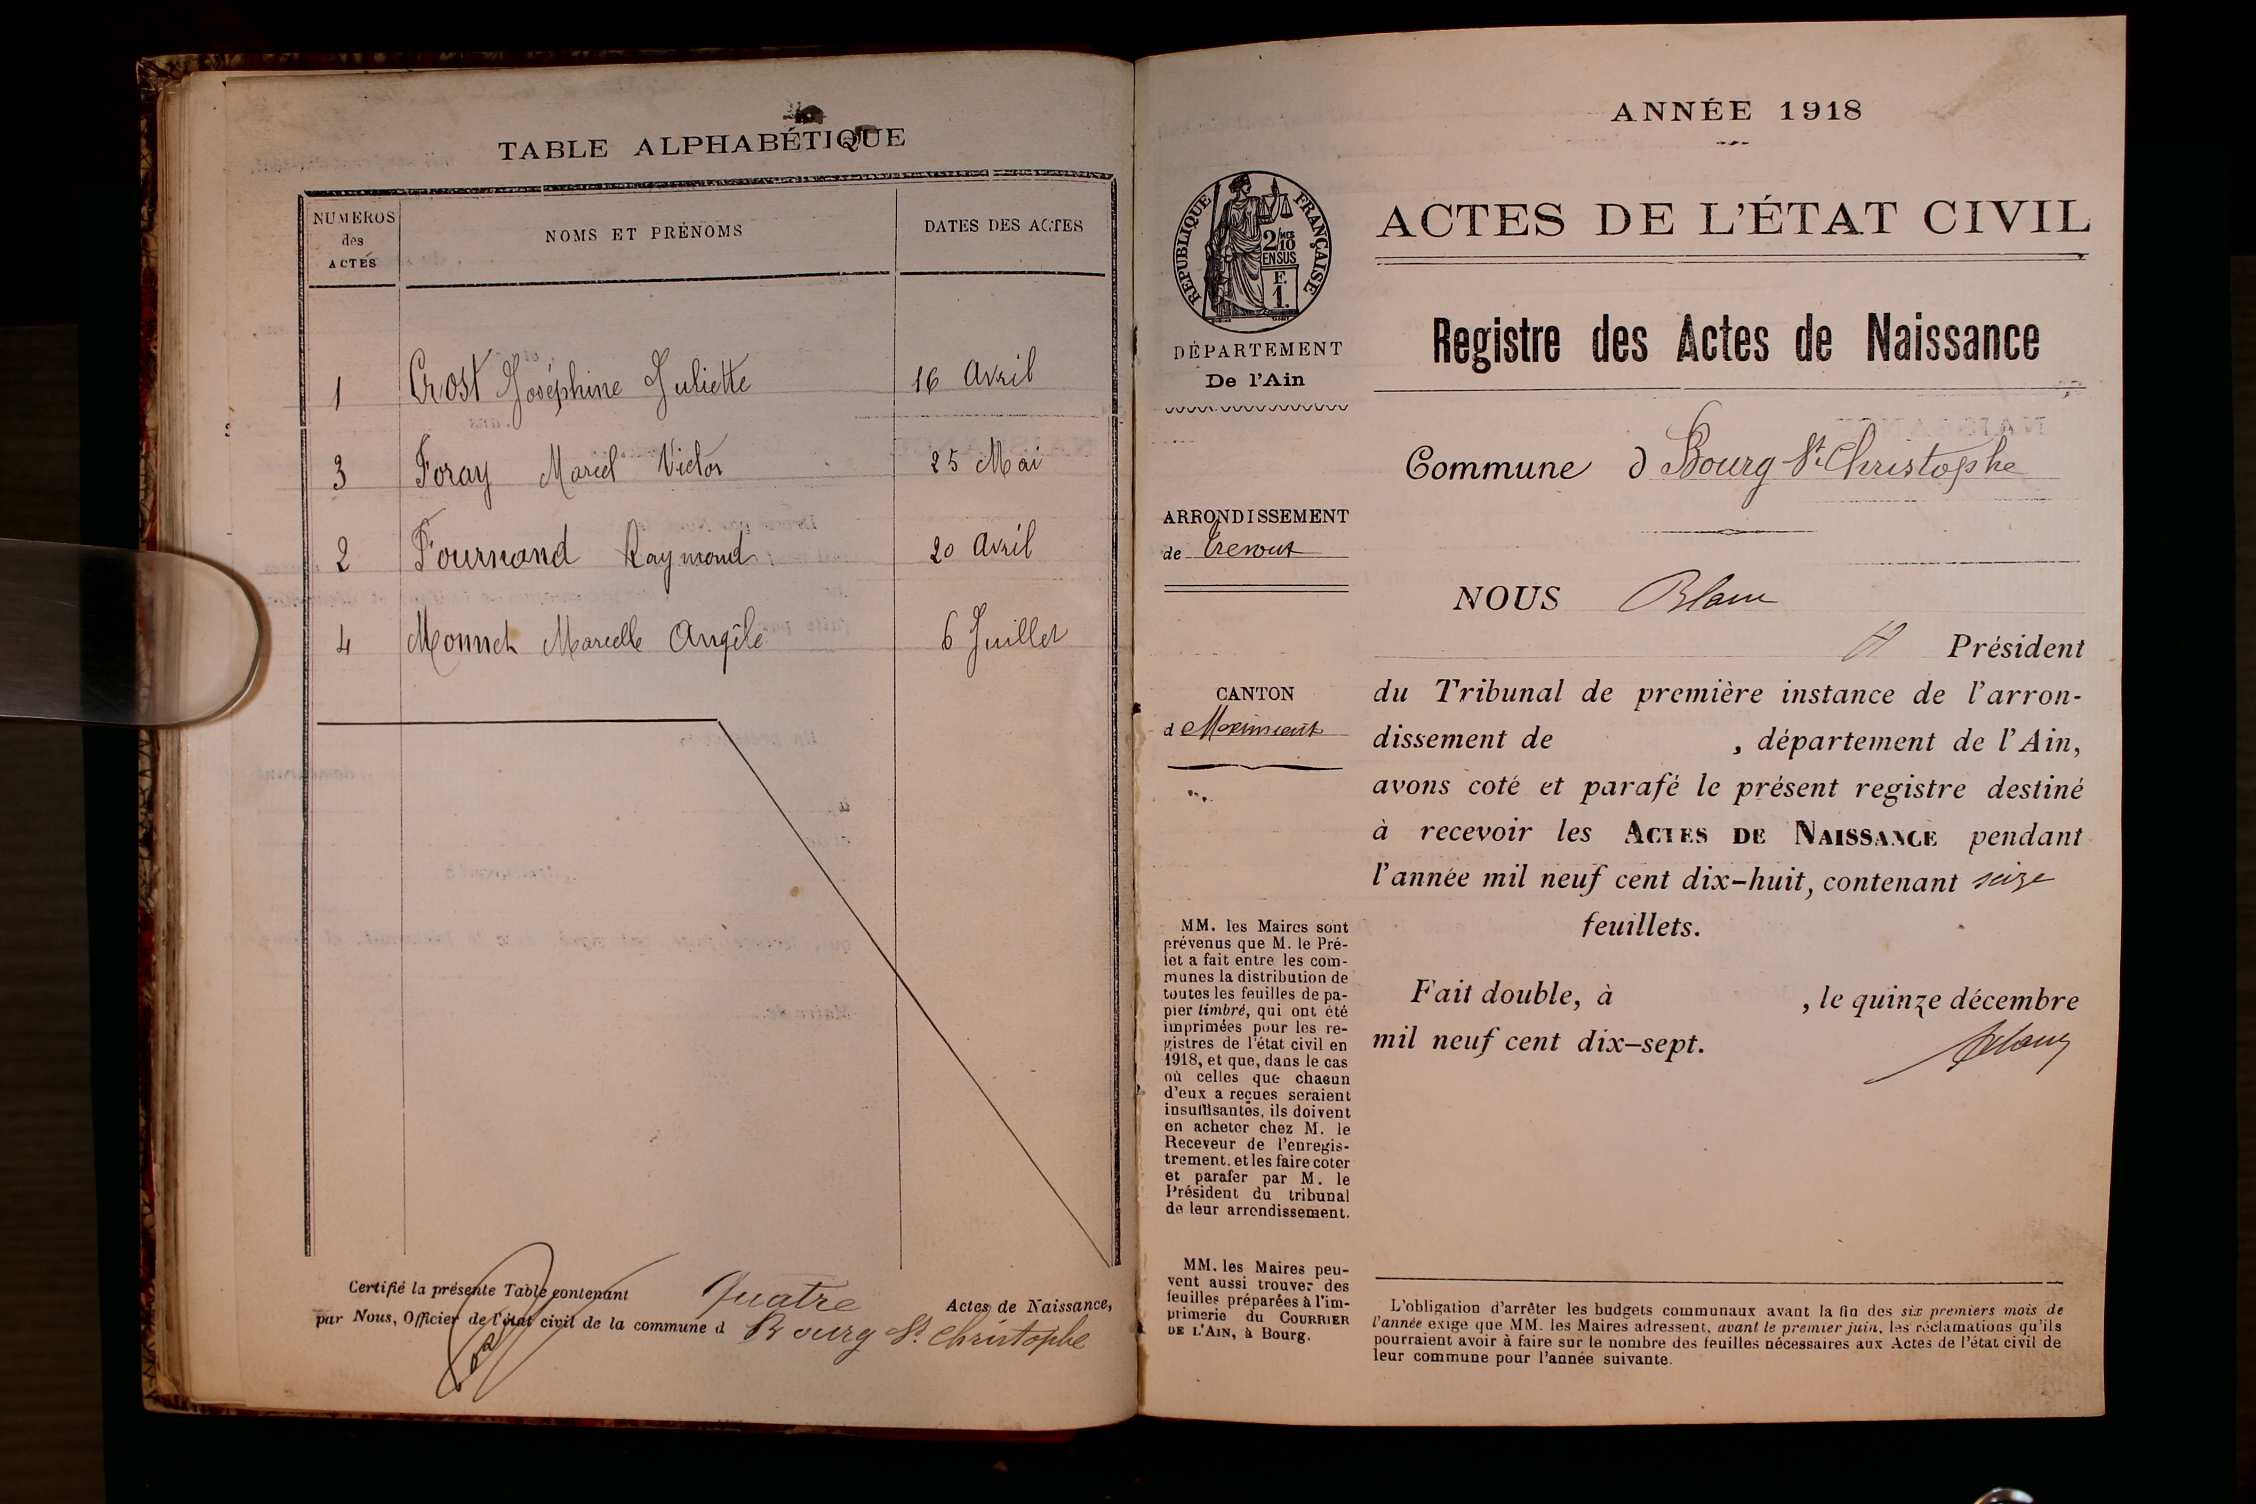 TABLE ALPHABÉTIQUE
NUMÉROS
des
ACTES
NOMS ET PRÉNOMS
DATES DES ACTES
1 Crost Joséphine Juliette 16 Avril
3 Foray Marcel Victor 25 Mai
2 Fournand Raymond 20 Avril
4 Monnet Marcelle Angèle 6 Juillet
Certifié la présente Table contenant Quatre Actes de Naissance,
par Nous, Officier de l'état civil de la commune d Bourg St Christophe
ANNÉE 1918
RÉPUBLIQUE FRANÇAISE
2/10
EN SUS
F.
1.
DÉPARTEMENT
De l'Ain
ARRONDISSEMENT
de Trevoux
CANTON
d Meximieux
MM. les Maires sont
prévenus que M. le Pré-
fet a fait entre les com-
munes la distribution de
toutes les feuilles de pa-
pier timbré, qui ont été
imprimées pour les re-
gistres de l'état civil en
1918, et que, dans le cas
où celles que chacun
d'eux a reçues seraient
insuffisantes, ils doivent
en acheter chez M. le
Receveur de l'enregis-
trement, et les faire coter
et parafer par M. le
Président du tribunal
de leur arrondissement.
MM. les Maires peu-
vent aussi trouver des
feuilles préparées à l'im-
primerie du COURRIER
DE L'AIN, à Bourg.
ACTES DE L'ÉTAT CIVIL
Registre des Actes de Naissance
Commune d Bourg St Christophe
NOUS Blanc
Président
du Tribunal de première instance de l'arron-
dissement de , département de l'Ain,
avons coté et parafé le présent registre destiné
à recevoir les ACTES DE NAISSANCE pendant
l'année mil neuf cent dix-huit, contenant seize
feuillets.
Fait double, à , le quinze décembre
mil neuf cent dix-sept.
Blanc
L'obligation d'arrêter les budgets communaux avant la fin des six premiers mois de
l'année exige que MM. les Maires adressent, avant le premier juin, les réclamations qu'ils
pourraient avoir à faire sur le nombre des feuilles nécessaires aux Actes de l'état civil de
leur commune pour l'année suivante.